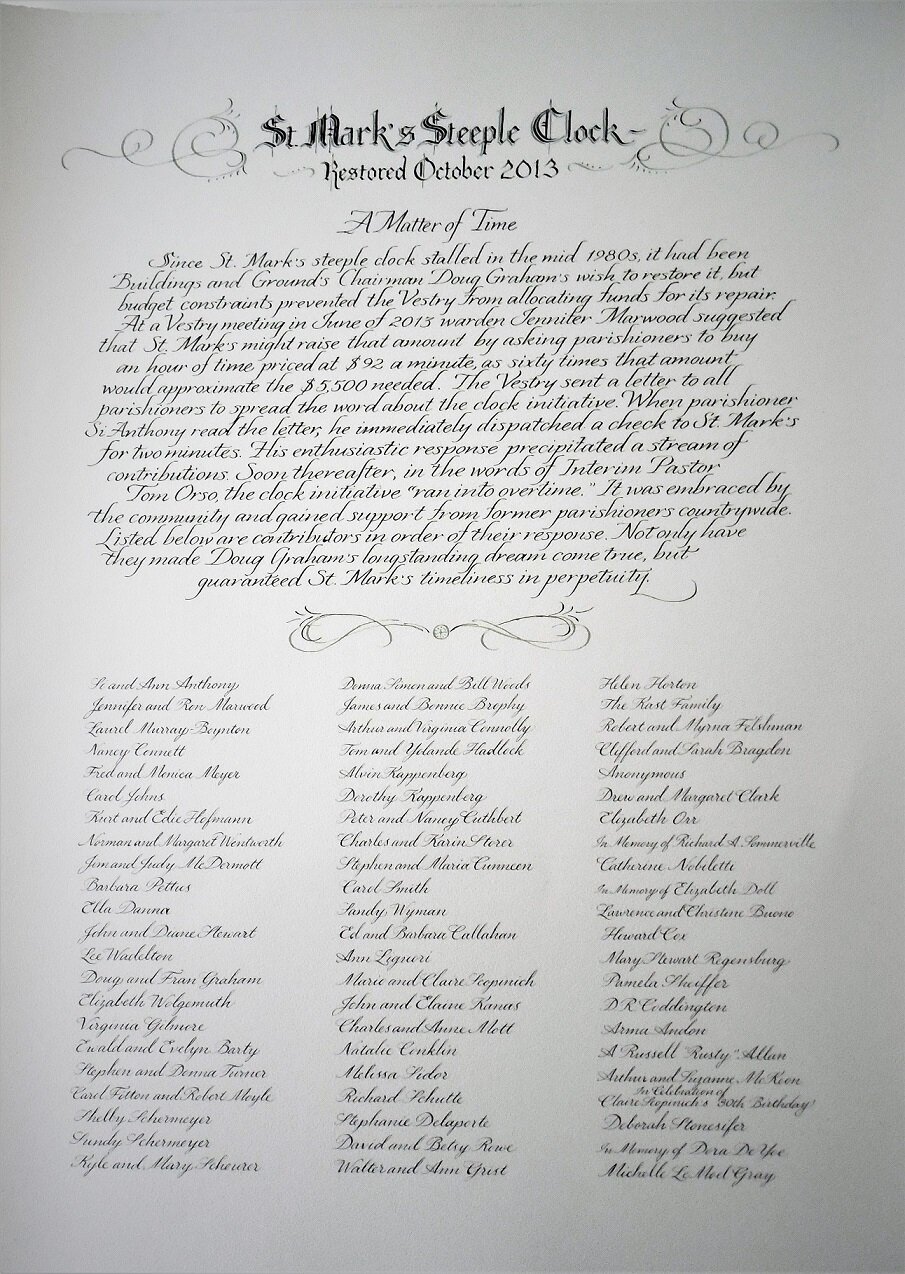 St. Mark's Steeple Clock-
Restored October 2013
A Matter of Time
Since St. Mark's steeple clock stalled in the mid 1980s, it had been
Buildings and Ground's Chairman Doug Graham's wish to restore it, but
budget constraints prevented the Vestry from allocating funds for its repair.
At a Vestry meeting in June of 2013 warden Jennifer Marwood suggested
that St. Mark's might raise that amount by asking parishioners to buy
an hour of time priced at $92 a minute, as sixty times that amount
would approximate the $5,500 needed. The Vestry sent a letter to all
parishioners to spread the word about the clock initiative. When parishioner
Si Anthony read the letter, he immediately dispatched a check to St. Mark's
for two minutes. His enthusiastic response precipitated a stream of
contributions. Soon thereafter, in the words of Interim Pastor
Tom Orso, the clock initiative "ran into overtime." It was embraced by
the community and gained support from former parishioners countrywide.
Listed below are contributors in order of their response. Not only have
they made Doug Graham's longstanding dream come true, but
guaranteed St. Mark's timeliness in perpetuity.
Si and Ann Anthony
Jennifer and Ron Marwood
Laurel Murray-Boynton
Nancy Connett
Fred and Monica Meyer
Carol Johns
Kurt and Edie Hofmann
Norman and Margaret Wentworth
Jim and Judy McDermott
Barbara Pettus
Ella Danna
John and Duane Stewart
Lee Wadelton
Doug and Fran Graham
Elizabeth Wolgemuth
Virginia Gilmore
Ewald and Evelyn Barty
Stephen and Donna Turner
Carol Fitton and Robert Moyle
Shelby Schermeyer
Sundy Schermeyer
Kyle and Mary Scheurer
Donna Simon and Bill Woods
James and Bonnie Brophy
Arthur and Virginia Connolly
Tom and Yolande Hadlock
Alvin Kappenberg
Dorothy Kappenberg
Peter and Nancy Cuthbert
Charles and Karin Storer
Stephen and Maria Cunneen
Carol Smith
Sandy Wyman
Ed and Barbara Callahan
Ann Liguori
Mario and Claire Scopinich
John and Elaine Kanas
Charles and Anne Mott
Natalie Conklin
Melissa Sidor
Richard Schutte
Stephanie Delaporte
David and Betsy Rowe
Walter and Ann Grist
Helen Horton
The Kast Family
Robert and Myrna Felshman
Clifford and Sarah Bragdon
Anonymous
Drew and Margaret Clark
Elizabeth Orr
In Memory of Richard A. Sommerville
Catherine Nobiletti
In Memory of Elizabeth Doll
Lawrence and Christine Buono
Howard Cox
Mary Stewart Regensburg
Pamela Shiffer
D R Coddington
Arma Andon
A Russell "Rusty" Allan
Arthur and Suzanne McKoon
In Celebration of
Claire Scopinich's 90th Birthday
Deborah Stonesifer
In Memory of Dora De Yoe
Michelle Le Moel Gray